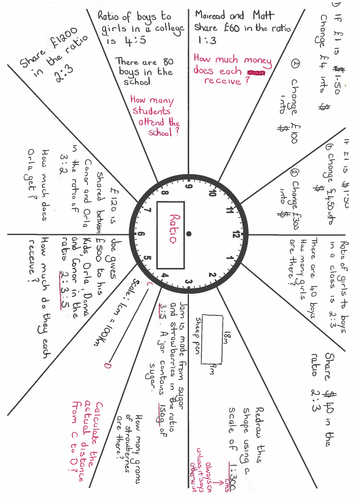 Ratio of boys to
girls in a college
is 4:5
There are 80
boys in the
school.
How many
students
attend the
school?
Mairead and Matt
share £60 in the ratio
1:3
How much money
does each
receive?
1) IF £1 is $1.50
Change £4 into $
2) Change £100
into $
IF £1 is $
1) Change £450 into
$
2) Change £300
into $
Ratio of girls to boys
in a class is 2:3
There are 40 boys
How many girls
are there?
Share $40 in the
ratio
2:3
Redraw this
shape using a
scale of 1:300
always cm
unless it says
otherwise
18m
9m
sheep pen
Jam is made from sugar
and strawberries in the ratio
3:5. A jar contains 150g of
sugar.
How many grams
of strawberries
are there?
Scale: 1cm = 100km
C
D
Calculate the
actual distance
from C to D?
Joe gives
£500 to his
kids, Orla, Donna
and Conor in the
ratio 2:3:5
How much do they each
receive?
£120 is
shared between
Conor and Orla
in the ratio of
3:2
How much does
Orla get?
Share £1200
in the ratio
2:3
12
11
10
9
8
7
6
5
4
3
2
1
Ratio